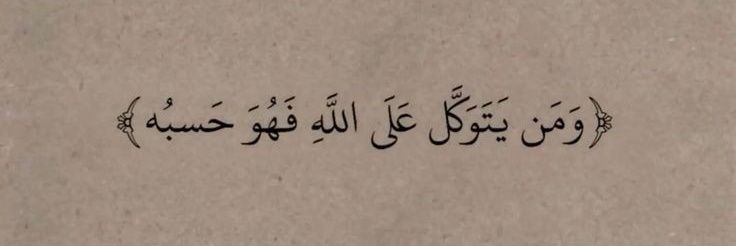 ﴿وَمَن يَتَوَكَّل عَلَى اللَّهِ فَهُوَ حَسبُه﴾